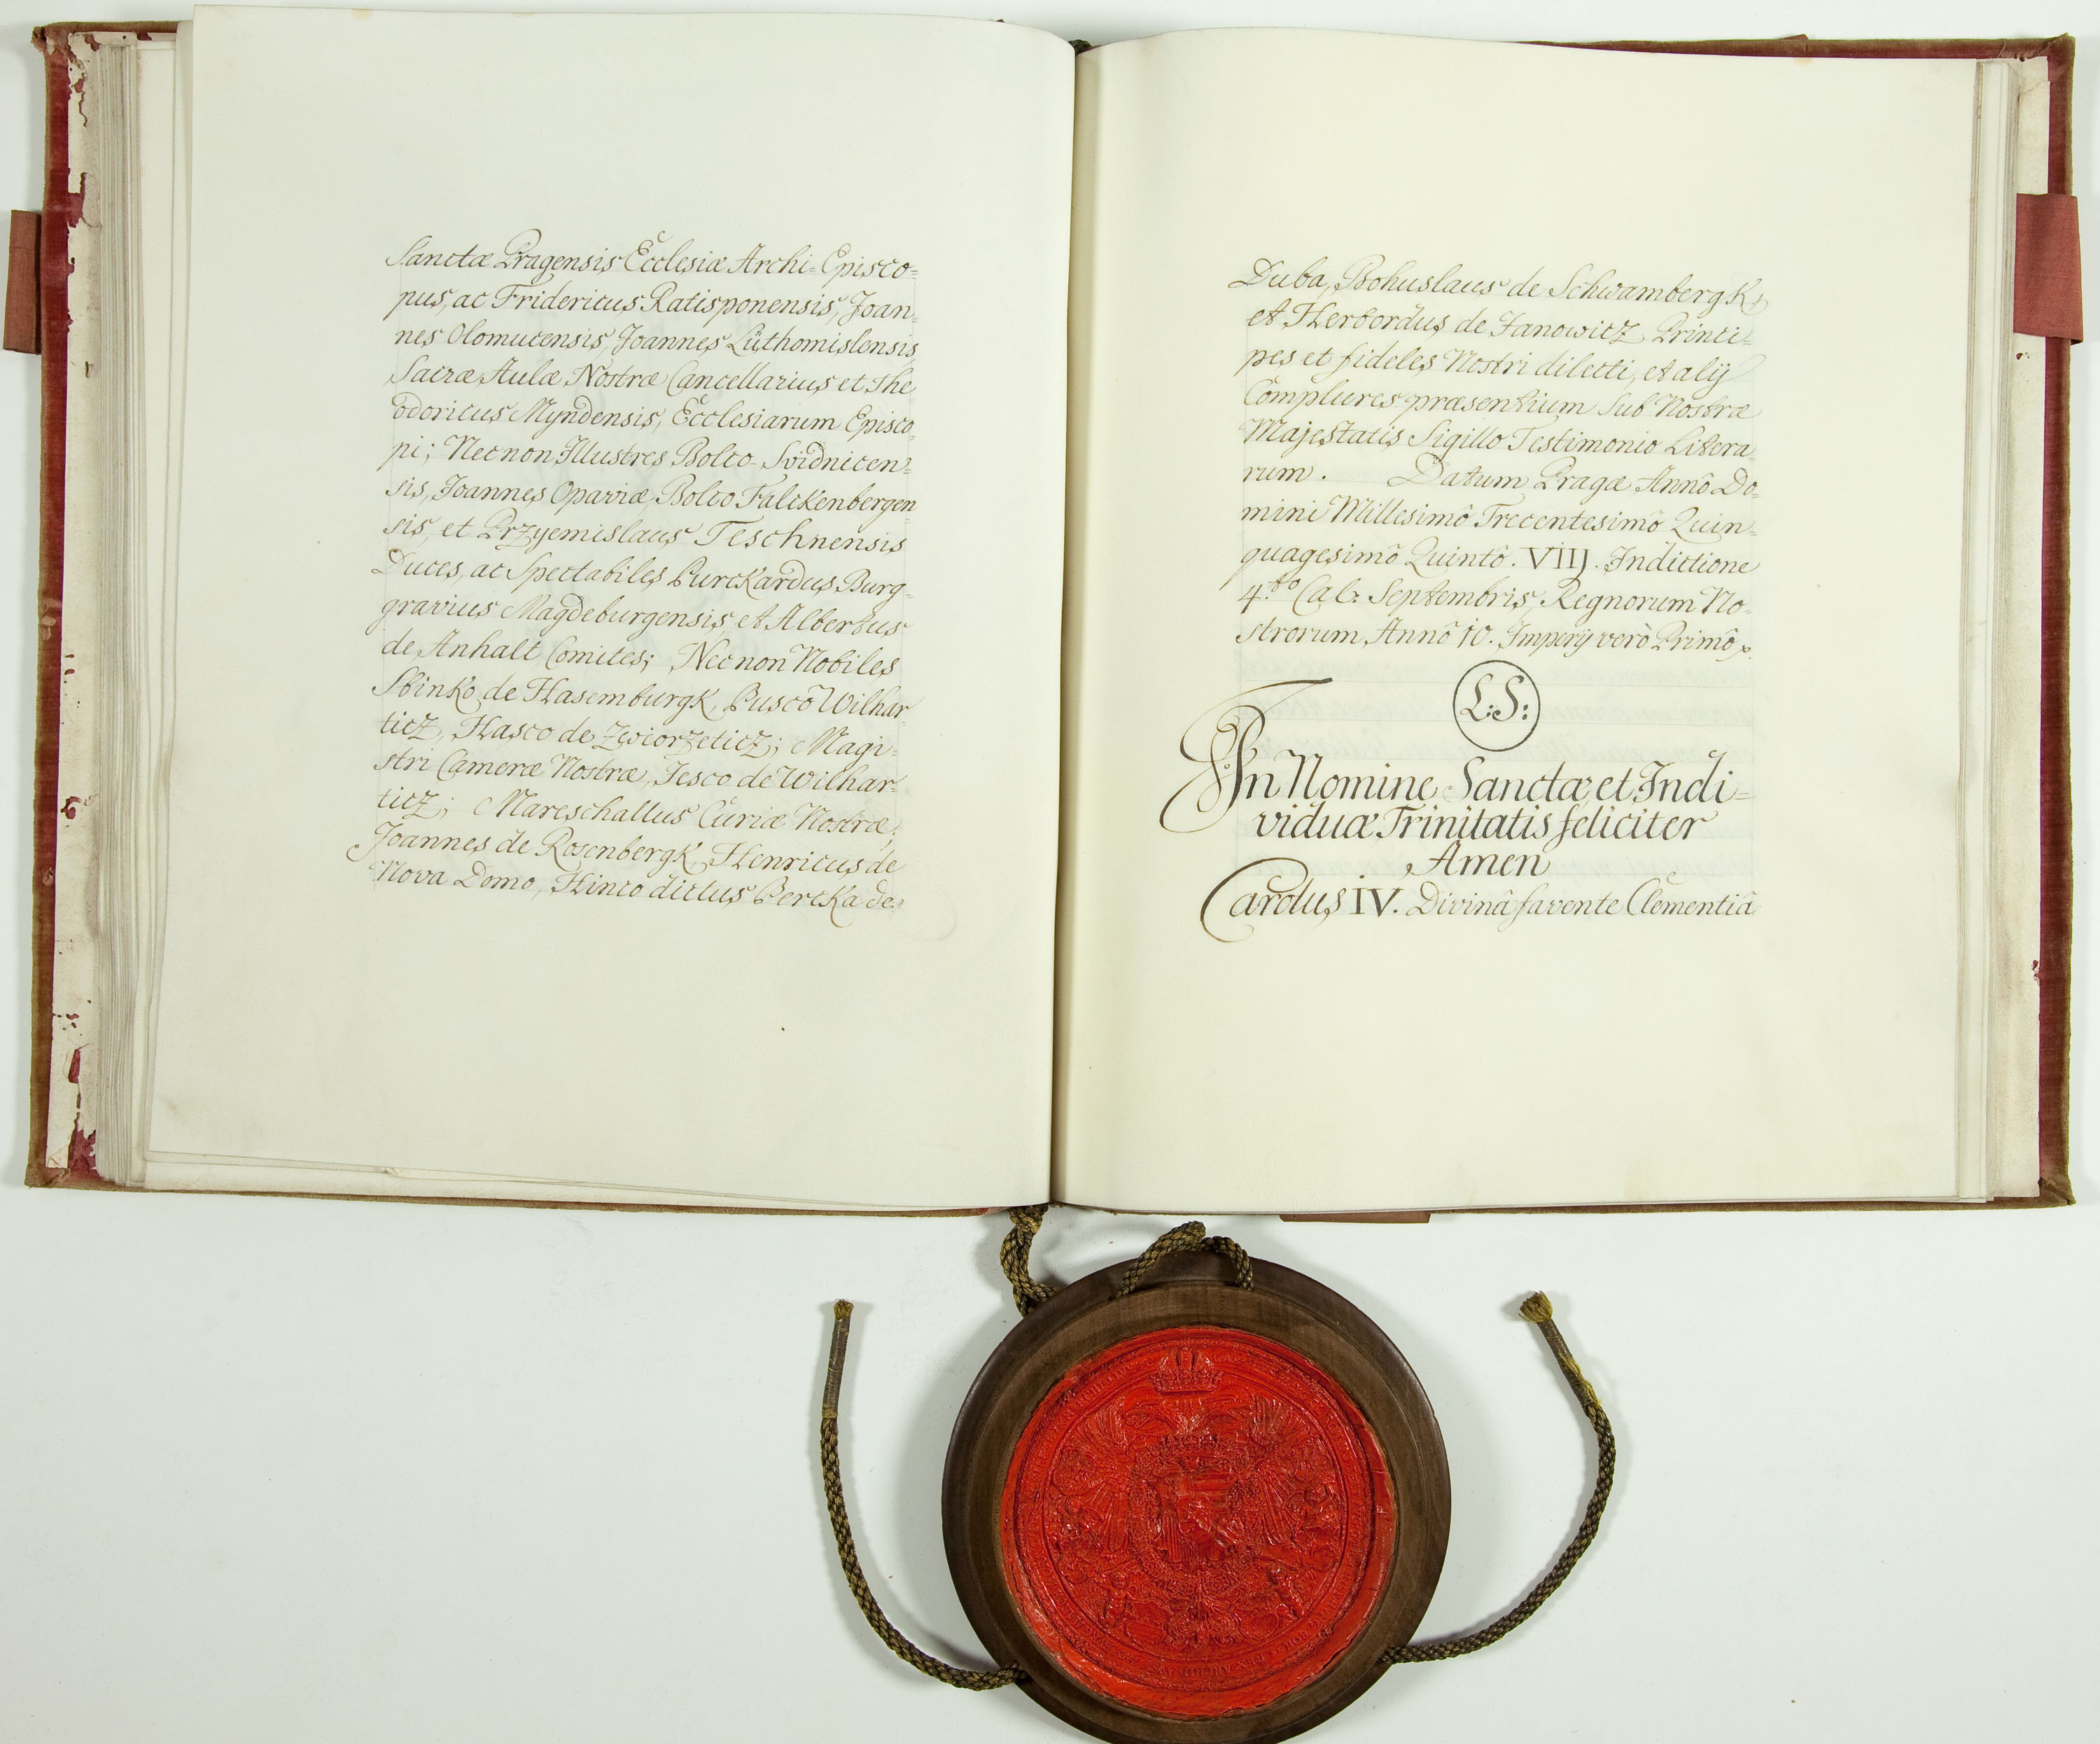 Sanctæ Pragensis Ecclesiæ Archi-Episco=
pus, ac Fridericus Ratisponensis, Joan=
nes Olomucensis, Joannes Lüthomislensis
Sacræ Aulæ Nostræ Cancellarius et The
odoricus Myndensis, Ecclesiarum Episco
pi; Necnon Illustres Bolco Svidnicen=
sis, Joannes Opaviæ, Bolco Falckenbergen
sis, et Przyemislaus Teschnensis
Duces, ac Spectabiles Purckardus Burg=
gravius Magdeburgensis et Albertus
de Anhalt Comites; Necnon Nobiles
Sbinko de Hasemburgk, Pusco Wilhar
ticz, Hasco de Zwiorzeticz; Magi=
stri Cameræ Nostræ, Jesco de Wilhar=
ticz; Mareschallus Curiæ Nostræ;
Joannes de Rosenbergk, Henricus de
Nova Domo, Hinco dictus Bercka de
Duba, Bohuslaus de Schwambergk,
et Herbordus de Janowicz, Princi=
pes et fideles Nostri dilecti, et alÿ
Complures præsentium Sub Nostræ
Majestatis Sigillo Testimonio Litera
rum. Datum Pragæ Annô Do=
mini Millesimô Trecentesimô Quin=
quagesimô Quintô. VIIJ. Indictione
4.to Cal: Septembris, Regnorum No=
strorum Annô 10. Imperÿ verò Primô
L:S:
In Nomine Sanctæ, et Indi=
viduæ Trinitatis feliciter
Amen
Carolus IV. Divinâ favente Clementiâ